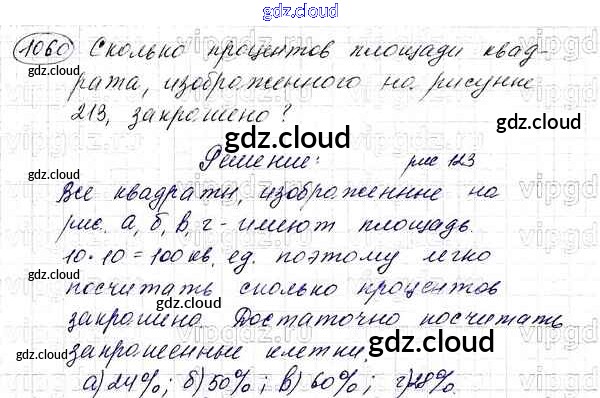 gdz.cloud
1060 Сколько процентов площади квад-
gdz.cloud gdz.cloud
рата, изображенного на рисунке
213, закрашено?
gdz.cloud gdz.cloud
Решение: рис 123
Все квадраты, изображенные на
gdz.cloud gdz.cloud
рис. а, б, в, г - имеют площадь.
10·10=100 кв. ед. поэтому легко
gdz.cloud gdz.cloud
посчитать сколько процентов
закрашено. Достаточно посчитать
gdz.cloud gdz.cloud
закрашенные клетки.
gdz.cloud
а) 24%; б) 50%; в) 60%; г) 28%.
vipgd